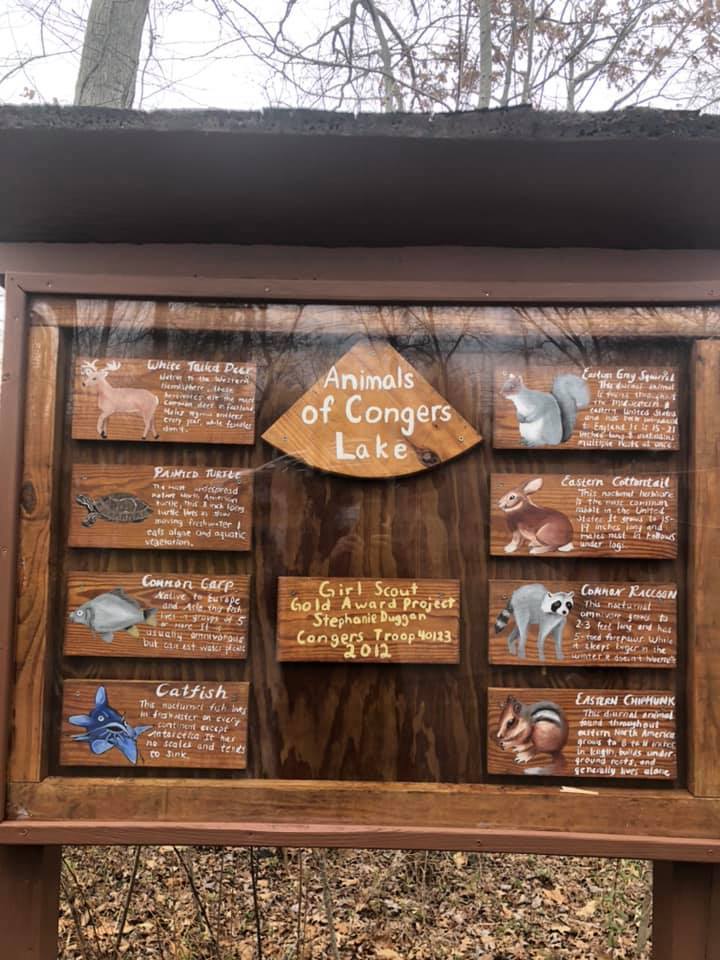 Animals
of Congers
Lake
White Tailed Deer
Native to the Western
Hemisphere, these
herbivores are the most
common deer in
Males regrow antlers
every year, while females
don't.
PAINTED TURTLE
The most widespread
native North American
turtle, this 8 inch long
turtle lives in slow
moving freshwater &
eats algae and aquatic
vegetation.
COMMON CARP
Native to Europe
and Asia this fish
lives in groups of 5
or more. It is
usually omnivorous
but can eat water plants
CATFISH
This nocturnal fish lives
in freshwater on every
continent except
Antarctica. It has
no scales and tends
to sink.
Girl Scout
Gold Award Project
Stephanie Duggan
Congers Troop 40123
2012
Eastern Gray Squirrel
This diurnal animal
is found throughout
the Midwestern &
eastern United States
and has been introduced
to England. It is 15-21
inches long & maintains
multiple nests at once.
Eastern Cottontail
This nocturnal herbivore
is the most common
rabbit in the United
States. It grows to 15-
19 inches long and
makes nest in hollows
under logs.
COMMON RACCOON
This nocturnal
omnivore grows to
2-3 feet long and has
5-toed forepaws. While
it sleeps longer in the
winter it doesn't hibernate
EASTERN CHIPMUNK
This diurnal animal
found throughout
eastern North America
grows to 8 to 11 inches
in length, builds under-
ground nests, and
generally lives alone